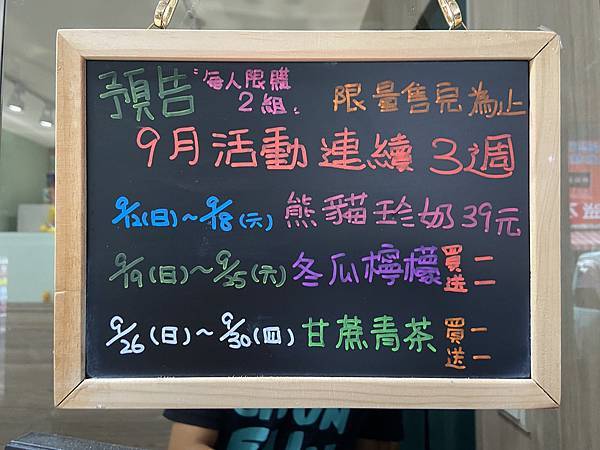 預告 每人限購2組 限量售完為止
9月活動連續3週
9/12(日)~9/18(六) 熊貓珍奶39元
9/19(日)~9/25(六) 冬瓜檸檬 買一送一
9/26(日)~9/30(四) 甘蔗青茶 買一送一